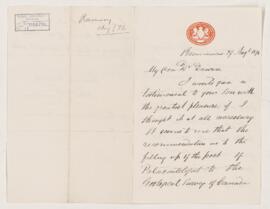 Ramsay
Aug / 76
My dear Dr Dawson
I would give a
testimonial to your son with
the greatest pleasure if I
thought it at all necessary
It seems to me that the
recommendation as to the
filling up of the post of
Palaeontologist to the
Geological Survey of Canada